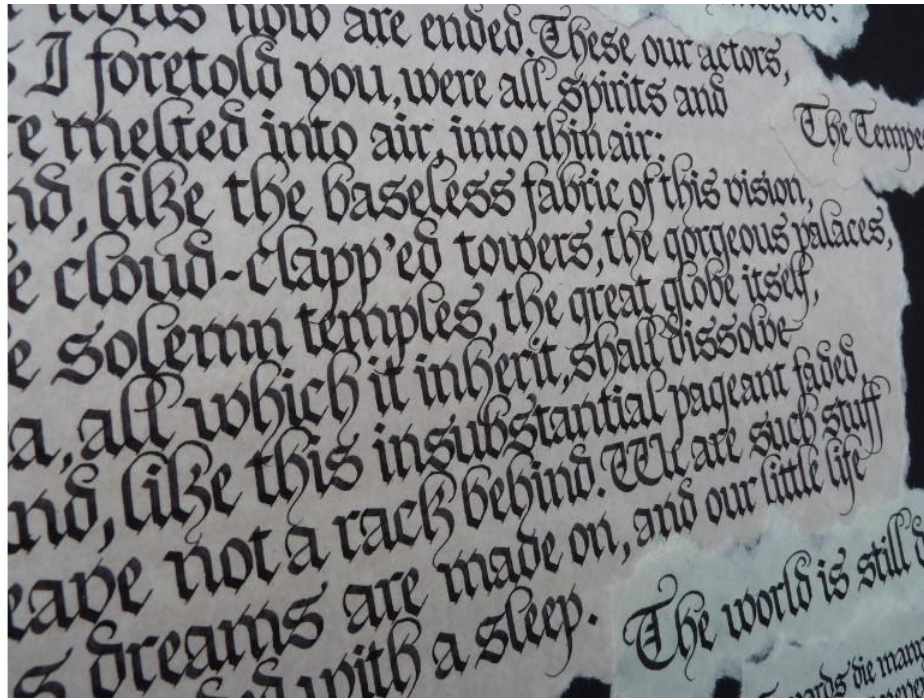 now are ended. These our actors,
I foretold you, were all spirits and
melted into air, into thin air:
The Tempe
like the baseless fabric of this vision,
cloud-clapp'ed towers, the gorgeous palaces,
solemn temples, the great globe itself,
a, all which it inherit, shall dissolve
nd, like this insubstantial pageant faded,
eave not a rack behind. We are such stuff
s dreams are made on, and our little life
ded with a sleep.
The world is still d
ards die many